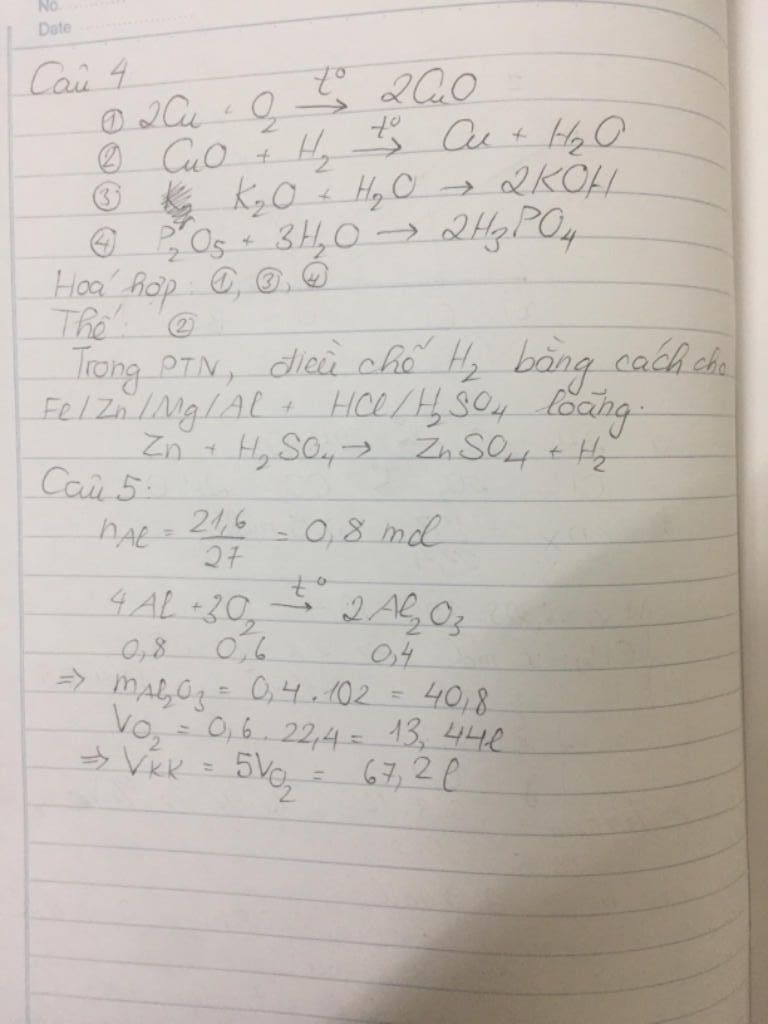 No.
Date
Câu 4
① 2Cu + O₂ →t° 2CuO
② CuO + H₂ →t° Cu + H₂O
③ K₂O + H₂O → 2KOH
④ P₂O₅ + 3H₂O → 2H₃PO₄
Hoá hợp: ①, ③, ④
Thế: ②
Trong PTN, điều chế H₂ bằng cách cho
Fe/Zn/Mg/Al + HCl/H₂SO₄ loãng.
Zn + H₂SO₄ → ZnSO₄ + H₂
Câu 5:
nAl = 21,6/27 = 0,8 mol
4Al + 3O₂ →t° 2Al₂O₃
0,8 0,6 0,4
⇒ mAl₂O₃ = 0,4.102 = 40,8
VO₂ = 0,6.22,4 = 13,44l
⇒ VKK = 5VO₂ = 67,2l